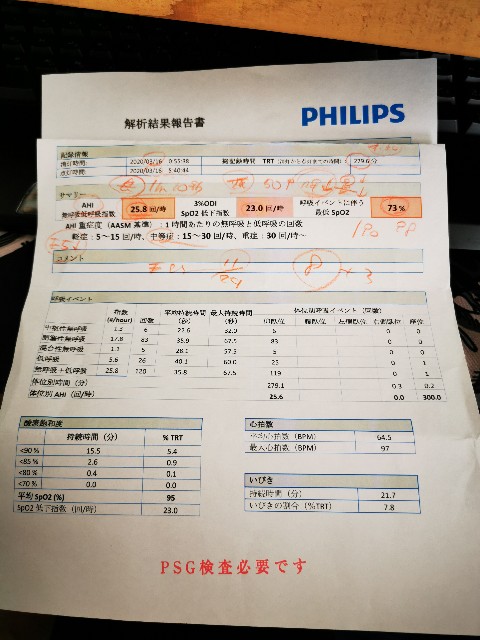 解析結果報告書
PHILIPS
記録情報
消灯時間: 2020/03/16 0:55:38 総記録時間 TRT (消灯から点灯までの時間): 279.6分
点灯時間: 2020/03/16 5:40:44
サマリー
AHI 無呼吸低呼吸指数 25.8 回/時 3%ODI SpO2 低下指数 23.0 回/時 呼吸イベントに伴う 最低 SpO2 73 %
AHI 重症度 (AASM 基準) : 1 時間あたりの無呼吸と低呼吸の回数
軽症: 5~15 回/時、中等症: 15~30 回/時、重症: 30 回/時~
コメント
11/24
8
呼吸イベント
指数 (#/hour) 回数 平均持続時間 (秒) 最大持続時間 (秒) 体位別呼吸イベント (回数)
仰臥位 腹臥位 左側臥位 右側臥位 座位
中枢性無呼吸 1.3 6 22.6 32.0 0 0
閉塞性無呼吸 17.8 83 35.9 67.5 83 0 0
混合性無呼吸 1.1 5 28.1 37.5 5 0 0
低呼吸 5.6 26 40.1 60.0 25 0 1
無呼吸+低呼吸 25.8 120 35.8 67.5 119 0 1
体位別時間 (分) 279.1 0.3 0.2
体位別 AHI (回/時) 25.6 0.0 300.0
酸素飽和度
持続時間 (分) % TRT
<90 % 15.5 5.4
<85 % 2.6 0.9
<80 % 0.4 0.1
<70 % 0.0 0.0
平均 SpO2 (%) 95
SpO2 低下指数 (回/時) 23.0
心拍数
平均心拍数 (BPM) 64.5
最大心拍数 (BPM) 97
いびき
持続時間 (分) 21.7
いびきの割合 (%TRT) 7.8
PSG検査必要です